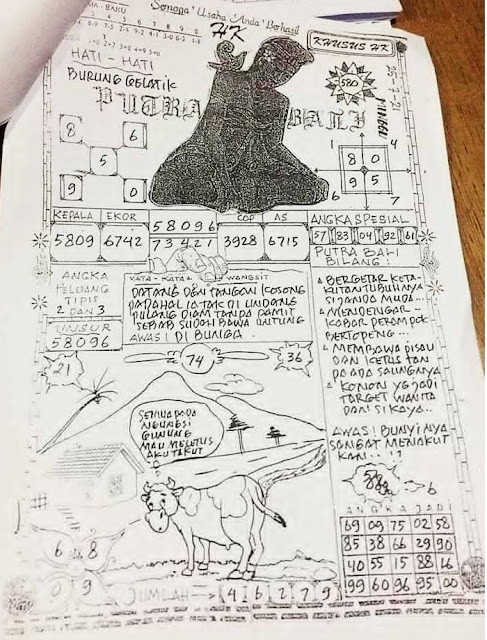 Semoga Usaha Anda Berhasil
HK
KHUSUS HK
HATI - HATI
BURUNG GELATIK
PUTRA BALI
580
MINGGU
8 6
5
9 0
1 4
8 0
9 5
6 7
KEPALA EKOR
5809 6742
58096
73421
COP AS
3928 6715
ANGKA SPESIAL
57 83 04 92 61
PUTRA BALI
BILANG:
ANGKA
PELUANG
TIPIS
2 DAN 3
UNSUR
58096
KATA - KATA WANGSIT
DATANG DEN TANGAN KOSONG
PADAHAL IA TAK DI UNDANG
PULANG DIAM TANPA PAMIT
SEBAB SUDAH BAWA UNTUNG
AWAS! DI BUNGA.
BERGETAR KETA-
KUTAN TUBUHNYA
SI JANDA MUDA...
MENDENGAR
KABAR PERAMPOK
BERTOPENG...
MEMBAWA PISAU
DAN KERIS TAN
PA ADA SARUNGNYA
KONON YG JADI
TARGET WANITA
DAN SI KAYA...
AWAS! BUNYINYA
SANGAT MENAKUT
KAN...!?
21
74
36
SEMUA PADA
NGUNGSI
GUNUNG
MAU MELETUS
AKU TAKUT
6 8
0 9
JUMLAH
4 6 2 7 9
ANGKA JADI
69 09 75 02 58
85 38 66 29 90
40 55 15 88 26
99 60 96 95 00